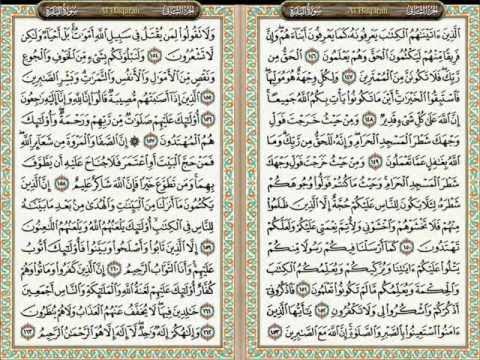 الجزء الثاني Al Baqarah سورة البقرة
ٱلَّذِينَ ءَاتَيْنَٰهُمُ ٱلْكِتَٰبَ يَعْرِفُونَهُۥ كَمَا يَعْرِفُونَ أَبْنَآءَهُمْ وَإِنَّ
فَرِيقًا مِّنْهُمْ لَيَكْتُمُونَ ٱلْحَقَّ وَهُمْ يَعْلَمُونَ ١٤٦ ٱلْحَقُّ مِن
رَّبِّكَ فَلَا تَكُونَنَّ مِنَ ٱلْمُمْتَرِينَ ١٤٧ وَلِكُلٍّ وِجْهَةٌ هُوَ مُوَلِّيهَا
فَٱسْتَبِقُوا۟ ٱلْخَيْرَٰتِ أَيْنَ مَا تَكُونُوا۟ يَأْتِ بِكُمُ ٱللَّهُ جَمِيعًا
إِنَّ ٱللَّهَ عَلَىٰ كُلِّ شَىْءٍ قَدِيرٌ ١٤٨ وَمِنْ حَيْثُ خَرَجْتَ فَوَلِّ
وَجْهَكَ شَطْرَ ٱلْمَسْجِدِ ٱلْحَرَامِ وَإِنَّهُۥ لَلْحَقُّ مِن رَّبِّكَ وَمَا
ٱللَّهُ بِغَٰفِلٍ عَمَّا تَعْمَلُونَ ١٤٩ وَمِنْ حَيْثُ خَرَجْتَ فَوَلِّ وَجْهَكَ
شَطْرَ ٱلْمَسْجِدِ ٱلْحَرَامِ وَحَيْثُ مَا كُنتُمْ فَوَلُّوا۟ وُجُوهَكُمْ
شَطْرَهُۥ لِئَلَّا يَكُونَ لِلنَّاسِ عَلَيْكُمْ حُجَّةٌ إِلَّا ٱلَّذِينَ ظَلَمُوا۟
مِنْهُمْ فَلَا تَخْشَوْهُمْ وَٱخْشَوْنِى وَلِأُتِمَّ نِعْمَتِى عَلَيْكُمْ وَلَعَلَّكُمْ
تَهْتَدُونَ ١٥٠ كَمَآ أَرْسَلْنَا فِيكُمْ رَسُولًا مِّنكُمْ
يَتْلُوا۟ عَلَيْكُمْ ءَايَٰتِنَا وَيُزَكِّيكُمْ وَيُعَلِّمُكُمُ ٱلْكِتَٰبَ
وَٱلْحِكْمَةَ وَيُعَلِّمُكُم مَّا لَمْ تَكُونُوا۟ تَعْلَمُونَ ١٥١ فَٱذْكُرُونِىٓ
أَذْكُرْكُمْ وَٱشْكُرُوا۟ لِى وَلَا تَكْفُرُونِ ١٥٢ يَٰٓأَيُّهَا ٱلَّذِينَ
ءَامَنُوا۟ ٱسْتَعِينُوا۟ بِٱلصَّبْرِ وَٱلصَّلَوٰةِ إِنَّ ٱللَّهَ مَعَ ٱلصَّٰبِرِينَ ١٥٣
الجزء الثاني Al Baqarah سورة البقرة
وَلَا تَقُولُوا۟ لِمَن يُقْتَلُ فِى سَبِيلِ ٱللَّهِ أَمْوَٰتٌۢ بَلْ أَحْيَآءٌ وَلَٰكِن
لَّا تَشْعُرُونَ ١٥٤ وَلَنَبْلُوَنَّكُم بِشَىْءٍ مِّنَ ٱلْخَوْفِ وَٱلْجُوعِ
وَنَقْصٍ مِّنَ ٱلْأَمْوَٰلِ وَٱلْأَنفُسِ وَٱلثَّمَرَٰتِ وَبَشِّرِ ٱلصَّٰبِرِينَ
١٥٥ ٱلَّذِينَ إِذَآ أَصَٰبَتْهُم مُّصِيبَةٌ قَالُوٓا۟ إِنَّا لِلَّهِ وَإِنَّآ إِلَيْهِ رَٰجِعُونَ
١٥٦ أُو۟لَٰٓئِكَ عَلَيْهِمْ صَلَوَٰتٌ مِّن رَّبِّهِمْ وَرَحْمَةٌ وَأُو۟لَٰٓئِكَ
هُمُ ٱلْمُهْتَدُونَ ١٥٧ ۞ إِنَّ ٱلصَّفَا وَٱلْمَرْوَةَ مِن شَعَآئِرِ ٱللَّهِ
فَمَنْ حَجَّ ٱلْبَيْتَ أَوِ ٱعْتَمَرَ فَلَا جُنَاحَ عَلَيْهِ أَن يَطَّوَّفَ
بِهِمَا وَمَن تَطَوَّعَ خَيْرًا فَإِنَّ ٱللَّهَ شَاكِرٌ عَلِيمٌ ١٥٨ إِنَّ ٱلَّذِينَ
يَكْتُمُونَ مَآ أَنزَلْنَا مِنَ ٱلْبَيِّنَٰتِ وَٱلْهُدَىٰ مِنۢ بَعْدِ مَا بَيَّنَّٰهُ
لِلنَّاسِ فِى ٱلْكِتَٰبِ أُو۟لَٰٓئِكَ يَلْعَنُهُمُ ٱللَّهُ وَيَلْعَنُهُمُ ٱللَّٰعِنُونَ
١٥٩ إِلَّا ٱلَّذِينَ تَابُوا۟ وَأَصْلَحُوا۟ وَبَيَّنُوا۟ فَأُو۟لَٰٓئِكَ أَتُوبُ
عَلَيْهِمْ وَأَنَا ٱلتَّوَّابُ ٱلرَّحِيمُ ١٦٠ إِنَّ ٱلَّذِينَ كَفَرُوا۟ وَمَاتُوا۟ وَهُمْ
كُفَّارٌ أُو۟لَٰٓئِكَ عَلَيْهِمْ لَعْنَةُ ٱللَّهِ وَٱلْمَلَٰٓئِكَةِ وَٱلنَّاسِ أَجْمَعِينَ
١٦١ خَٰلِدِينَ فِيهَا لَا يُخَفَّفُ عَنْهُمُ ٱلْعَذَابُ وَلَا هُمْ يُنظَرُونَ
١٦٢ وَإِلَٰهُكُمْ إِلَٰهٌ وَٰحِدٌ لَّآ إِلَٰهَ إِلَّا هُوَ ٱلرَّحْمَٰنُ ٱلرَّحِيمُ ١٦٣